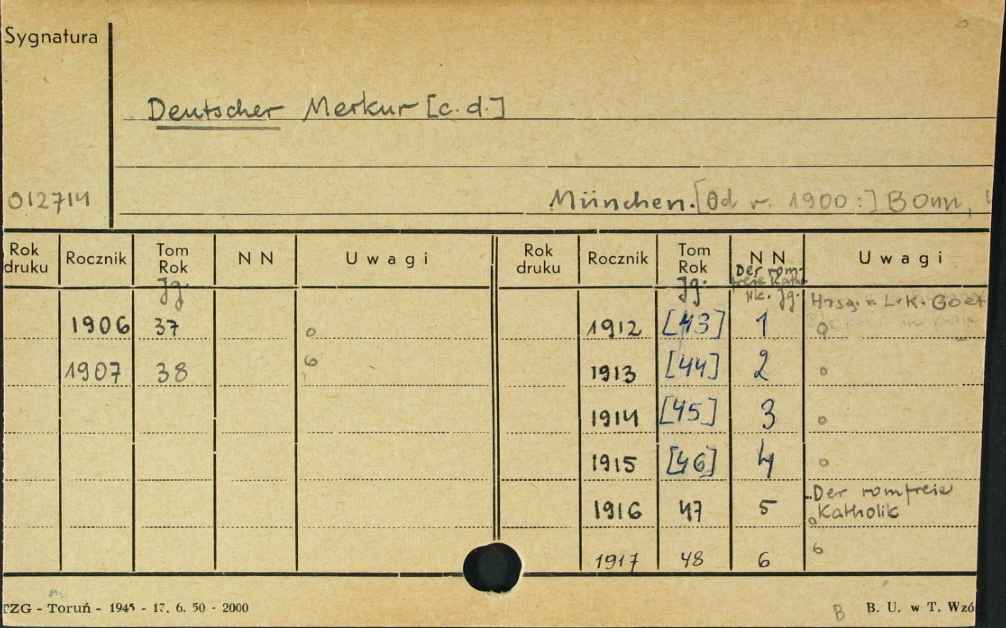 Sygnatura
Deutscher Merkur [c.d.]
012714
München. [Od r. 1900:] Bonn,
Rok druku Rocznik Tom Rok NN Uwagi Rok druku Rocznik Tom Rok NN Uwagi
Jg. Jg. Der romfreie Kath. Jg. Hrsg. v. L.K. Goetz
1906 37 o 1912 [43] 1 o
1907 38 6 1913 [44] 2 o
1914 [45] 3 o
1915 [46] 4 o
1916 47 5 Der romfreie Katholik o
1917 48 6 6
TZG - Toruń - 1945 - 17. 6. 50 - 2000 B B. U. w T. Wzó